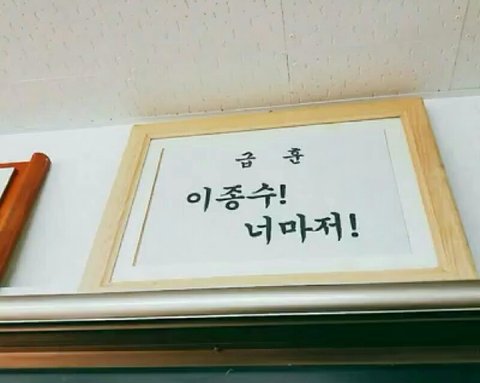 급 훈
이종수!
너마저!